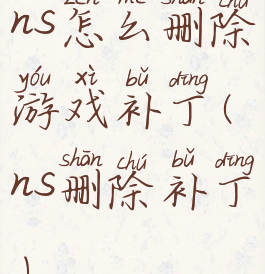 zěn me shān chú
ns 怎么删除
yóu xì bǔ dīng
游戏补丁(
shān chú bǔ dīng
ns删除补丁
)